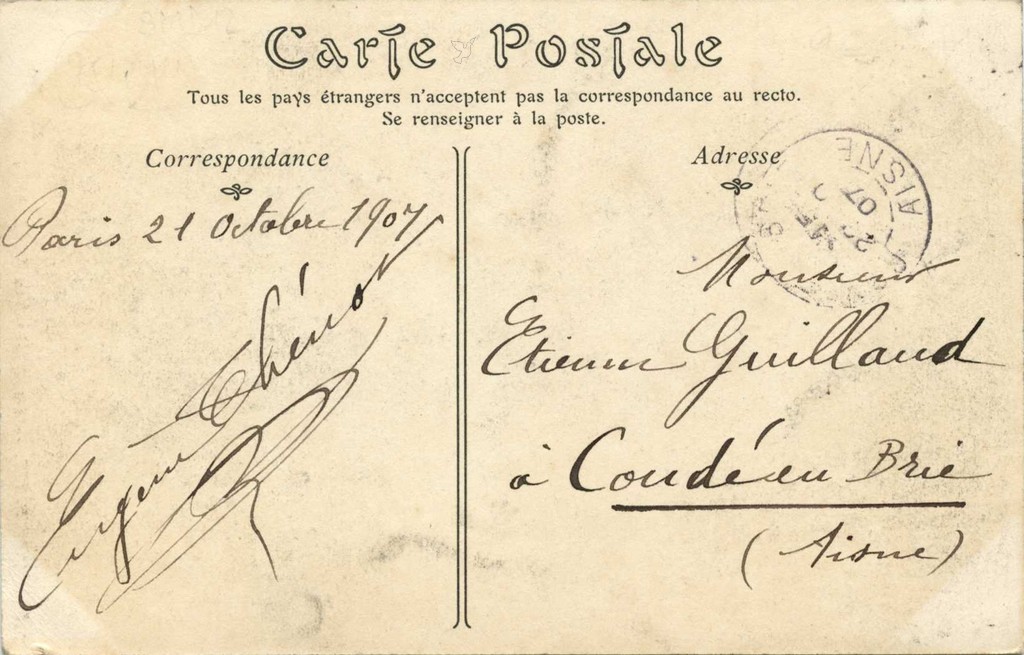 Carte Postale
Tous les pays étrangers n'acceptent pas la correspondance au recto.
Se renseigner à la poste.
Correspondance
Paris 21 Octobre 1907
Eugène Thénot
Adresse
AISNE
07
Monsieur
Etienne Guilland
à Condé en Brie
(Aisne)